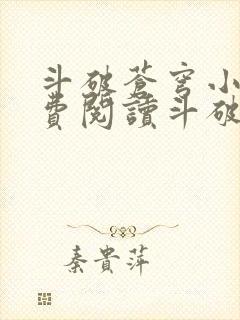 斗破蒼穹小
費閱讀斗破
秦貴萍